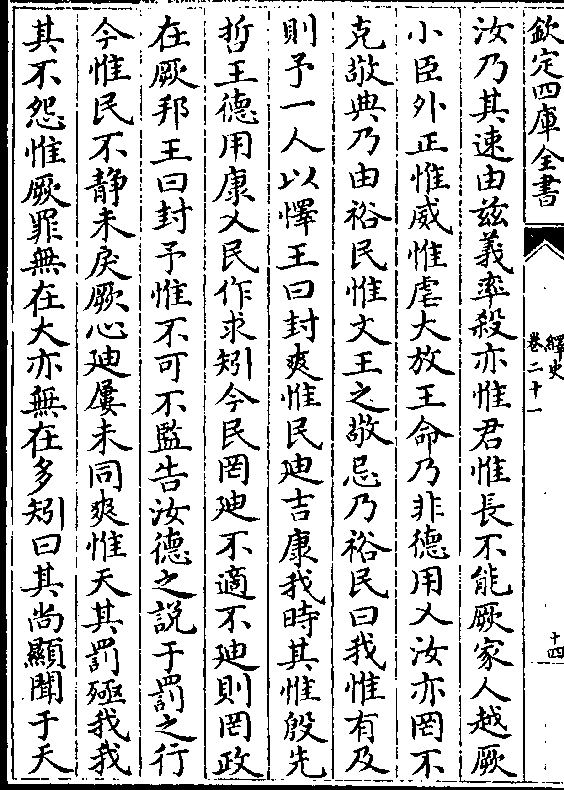 欽定四庫全書
繹史
卷二十一
十四
汝乃其速由兹義率殺亦惟君惟長不能厥家人越厥
小臣外正惟威惟虐大放王命乃非德用乂汝亦罔不
克敬典乃由裕民惟文王之敬忌乃裕民曰我惟有及
則予一人以懌王曰封爽惟民迪吉康我時其惟殷先
哲王德用康乂民作求矧今民罔迪不適不迪則罔政
在厥邦王曰封予惟不可不監告汝德之說于罰之行
今惟民不静未戾厥心迪屢未同爽惟天其罰殛我我
其不怨惟厥罪無在大亦無在多矧曰其尚顯聞于天